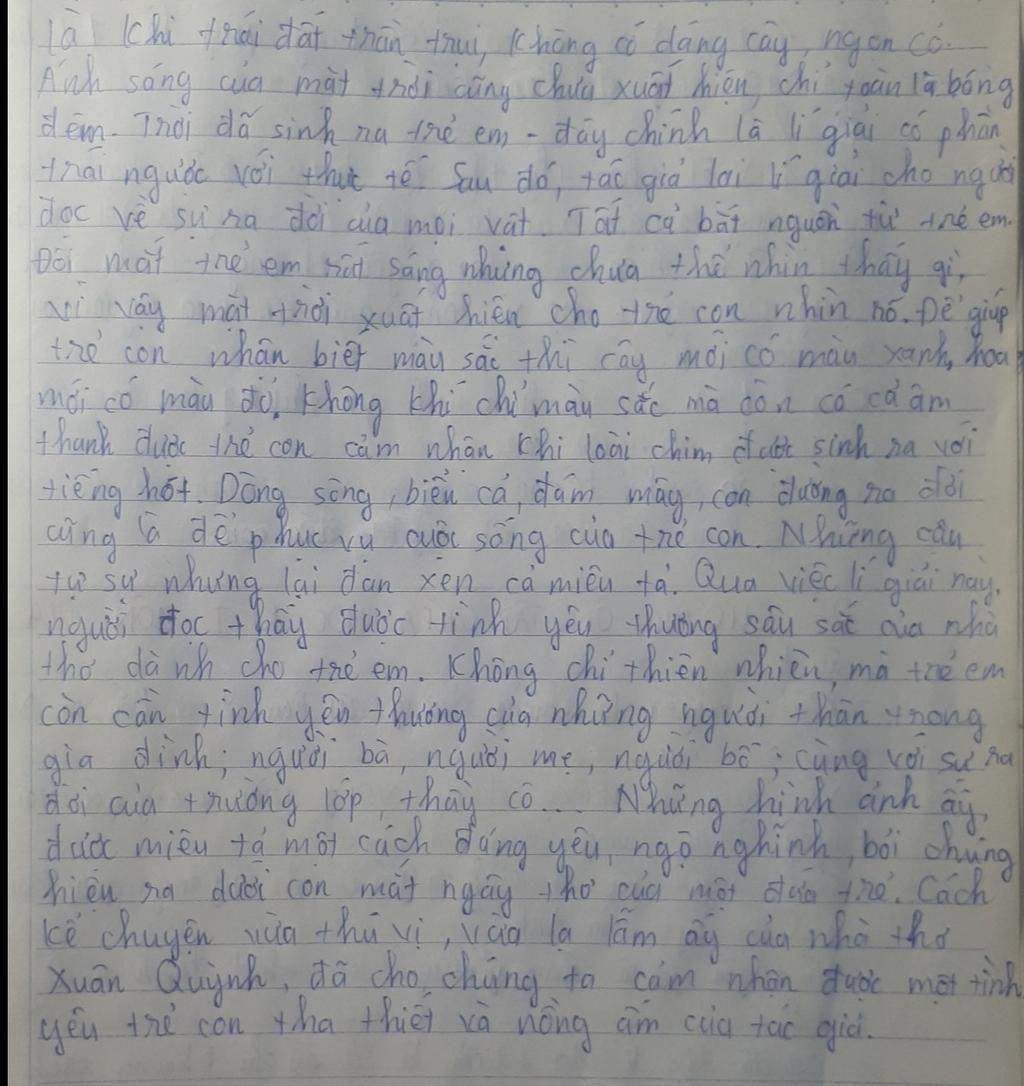 là khi trái đất trần trụi, không có dáng cây, ngọn cỏ.
Ánh sáng của mặt trời cũng chưa xuất hiện, chỉ toàn là bóng
đêm. Trời đã sinh ra trẻ em - đây chính là lí giải có phần
trái ngược với thực tế. Sau đó, tác giả lại lí giải cho người
đọc về sự ra đời của mọi vật. Tất cả bắt nguồn từ trẻ em.
Đôi mắt trẻ em rất sáng nhưng chưa thể nhìn thấy gì,
vì vậy mặt trời xuất hiện cho trẻ con nhìn rõ. Để giúp
trẻ con nhận biết màu sắc thì cây mới có màu xanh, hoa
mới có màu đỏ. Không khí chỉ màu sắc mà còn có cả âm
thanh được trẻ con cảm nhận khi loài chim được sinh ra với
tiếng hót. Dòng sông, biển cả, đám mây, con đường ra đời
cũng là để phục vụ cuộc sống của trẻ con. Những câu
tự sự nhưng lại đan xen cả miêu tả. Qua việc lí giải này,
người đọc thấy được tình yêu thương sâu sắc của nhà
thơ dành cho trẻ em. Không chỉ thiên nhiên, mà trẻ em
còn cần tình yêu thương của những người thân trong
gia đình; người bà, người mẹ, người bố; cùng với sự ra
đời của trường lớp, thầy cô... Những hình ảnh ấy,
được miêu tả một cách đáng yêu, ngộ nghĩnh, bởi chúng
hiện ra dưới con mắt ngây thơ của một đứa trẻ. Cách
kể chuyện vừa thú vị, vừa lạ lẫm ấy của nhà thơ
Xuân Quỳnh, đã cho chúng ta cảm nhận được một tình
yêu trẻ con tha thiết và nồng ấm của tác giả.